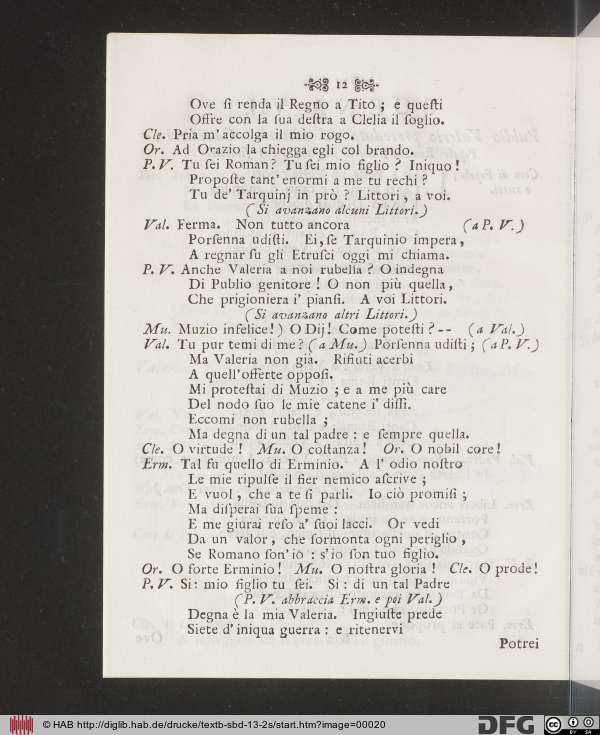 12
Ove ſi renda il Regno a Tito ; e queſti
Offre con la ſua deſtra a Clelia il ſoglio.
Cle. Pria m'accolga il mio rogo.
Or. Ad Orazio la chiegga egli col brando.
P. V. Tu ſei Roman? Tu ſei mio figlio ? Iniquo !
Propoſte tant'enormi a me tu rechi ?
Tu de' Tarquinj in prò ? Littori , a voi.
( Si avanzano alcuni Littori. )
Val. Ferma. Non tutto ancora ( a P. V. )
Porſenna udiſti. Ei, ſe Tarquinio impera,
A regnar ſu gli Etruſci oggi mi chiama.
P. V. Anche Valeria a noi rubella ? O indegna
Di Publio genitore ! O non più quella,
Che prigioniera i' pianſi. A voi Littori.
( Si avanzano altri Littori. )
Mu. Muzio infelice! ) O Dij! Come poteſti ? -- ( a Val. )
Val. Tu pur temi di me? ( a Mu. ) Porſenna udiſti ; ( a P. V. )
Ma Valeria non già. Rifiuti acerbi
A quell'offerte oppoſi.
Mi proteſtai di Muzio ; e a me più care
Del nodo ſuo le mie catene i' diſſi.
Eccomi non rubella ;
Ma degna di un tal padre : e ſempre quella.
Cle. O virtude ! Mu. O coſtanza! Or. O nobil core!
Erm. Tal fu quello di Erminio. A l' odio noſtro
Le mie ripulſe il fier nemico aſcrive ;
E vuol , che a te ſi parli. Io ciò promiſi ;
Ma diſperai ſua ſpeme :
E me giurai reſo a' ſuoi lacci. Or vedi
Da un valor , che ſormonta ogni periglio ,
Se Romano ſon'io : s'io ſon tuo figlio.
Or. O forte Erminio! Mu. O noſtra gloria ! Cle. O prode!
P. V. Si: mio figlio tu ſei. Si : di un tal Padre
( P. V. abbraccia Erm. e poi Val. )
Degna è la mia Valeria. Ingiuſte prede
Siete d'iniqua guerra : e ritenervi
Potrei
© HAB http://diglib.hab.de/drucke/textb-sbd-13-2s/start.htm?image=00020
DFG
cc
BY SA